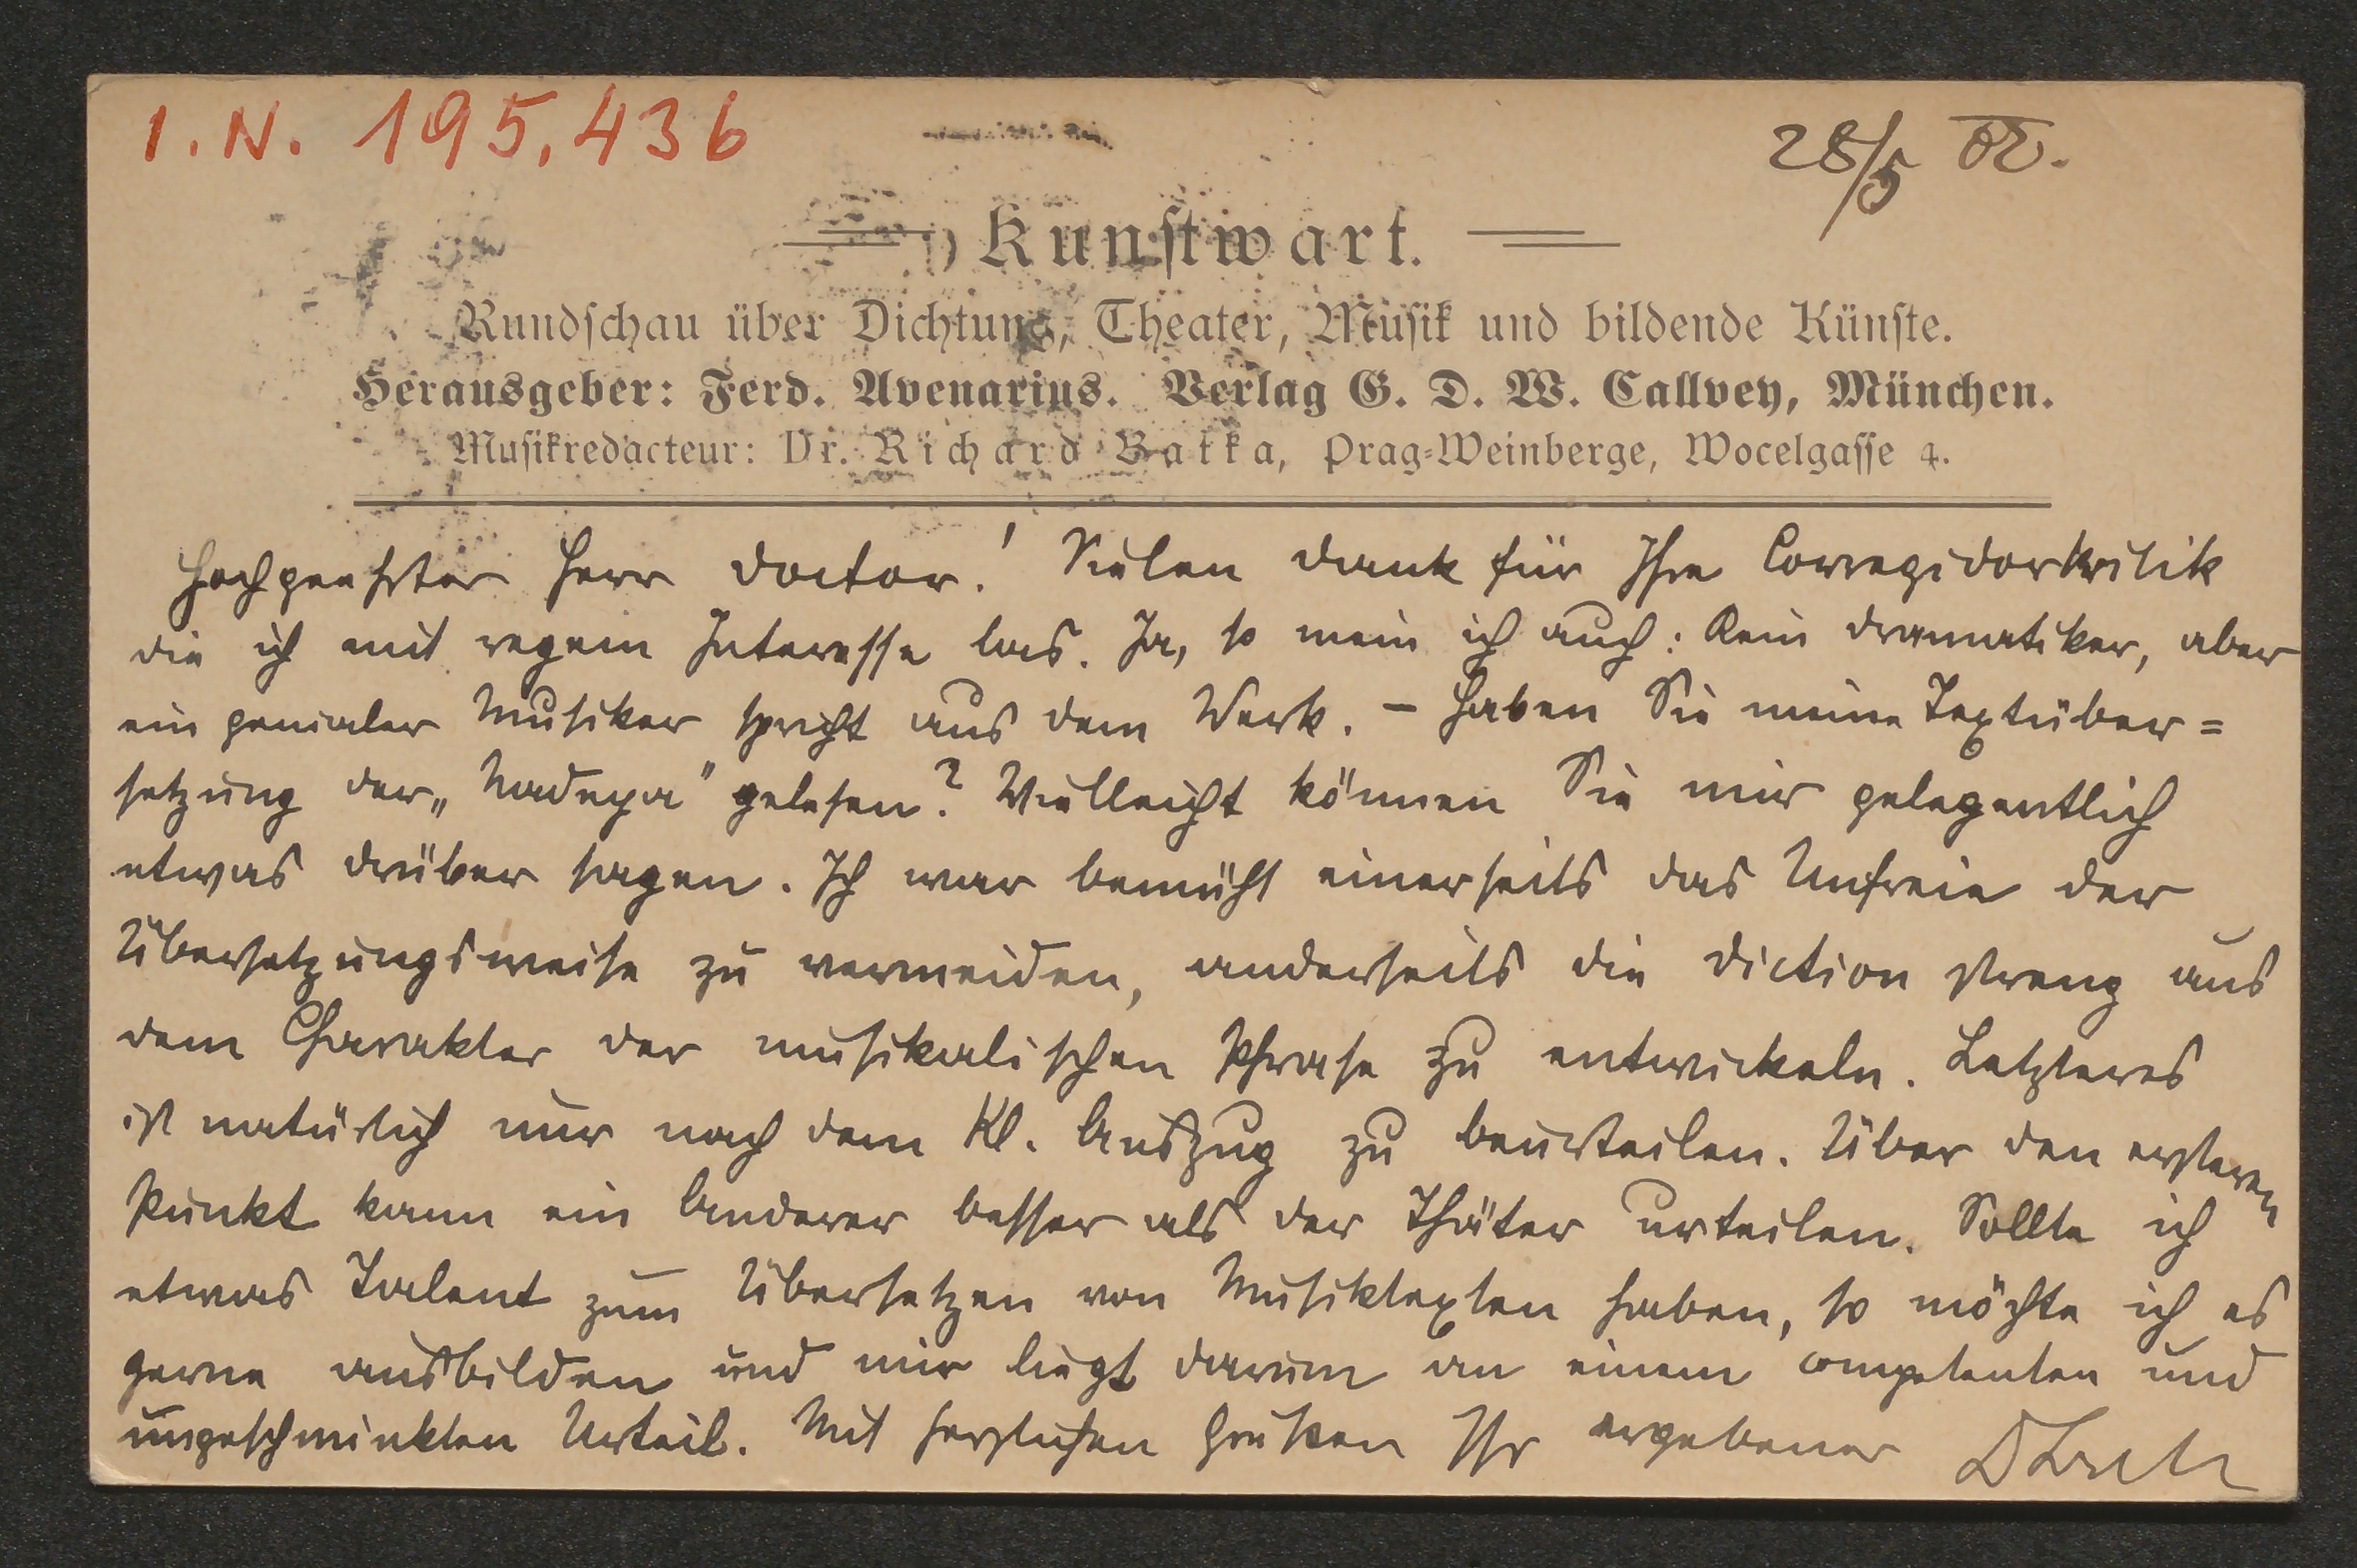 I. N. 195,436
28/5 02.
Kunstwart.
Rundschau über Dichtung, Theater, Musik und bildende Künste.
Herausgeber: Ferd. Avenarius. Verlag G. D. W. Callwey, München.
Musikredacteur: Dr. Richard Batka, Prag-Weinberge, Wocelgasse 4.
Hochgeehrter Herr Doctor! Vielen Dank für Ihre Corregidorkritik
die ich mit regem Interesse las. Ja, so mein ich auch: Kein Dramatiker, aber
ein genialer Musiker spricht aus dem Werk. – Haben Sie meine Textüber=
setzung der „Nadeya" gelesen? Vielleicht können Sie mir gelegentlich
etwas drüber sagen. Ich war bemüht einerseits das Unfreie der
Übersetzungsweise zu vermeiden, anderseits die Diction streng aus
dem Charakter der musikalischen Phrase zu entwickeln. Letzteres
ist natürlich nur nach dem Kl. Auszug zu beurteilen. Über den ersteren
Punkt kann ein Anderer besser als der Thäter urteilen. Sollte ich
etwas Talent zum Übersetzen von Musiktexten haben, so möchte ich es
gerne ausbilden und mir liegt darum an einem competenten und
ungeschminkten Urteil. Mit herzlichen Grüßen Ihr ergebener